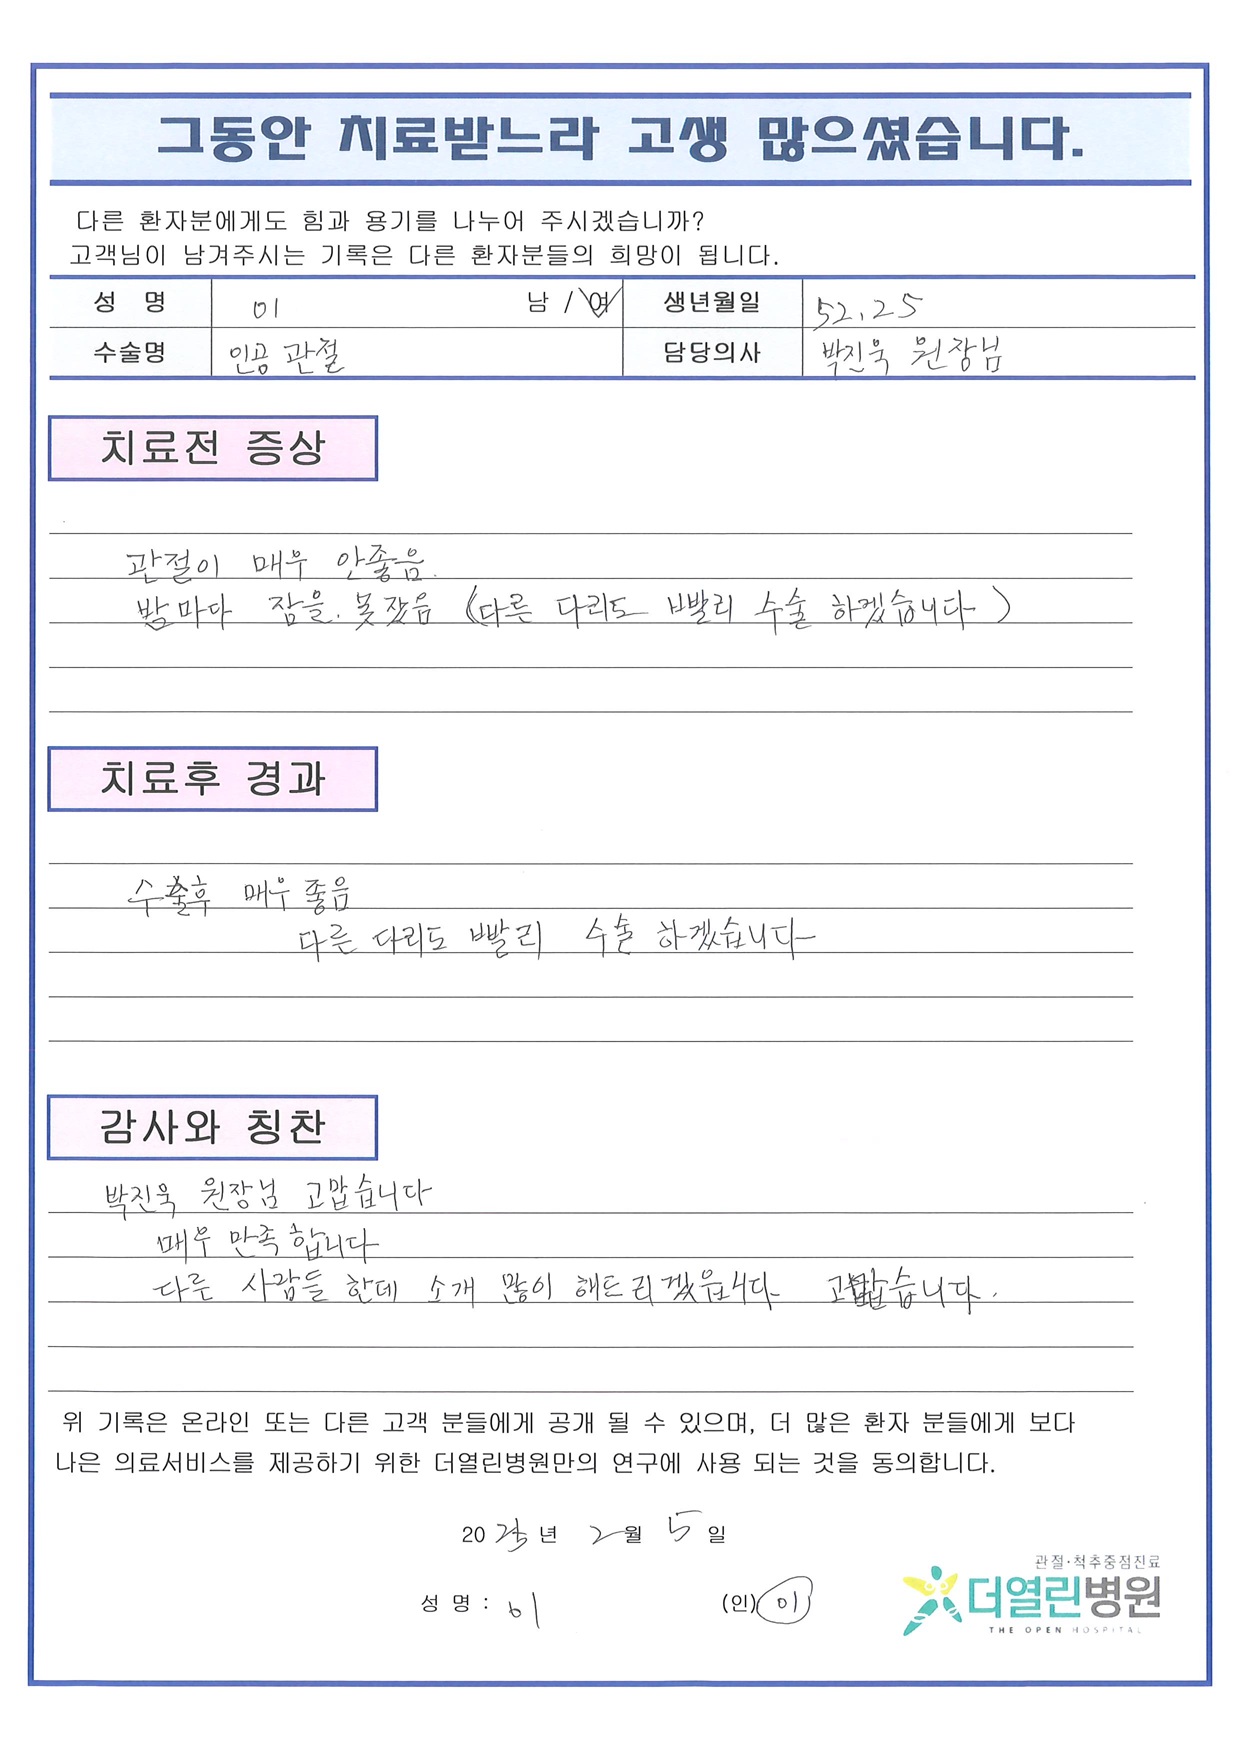 그동안 치료받느라 고생 많으셨습니다.
다른 환자분에게도 힘과 용기를 나누어 주시겠습니까?
고객님이 남겨주시는 기록은 다른 환자분들의 희망이 됩니다.
성 명 이 남 / 여 생년월일 52.25
수술명 인공관절 담당의사 박진욱 원장님
치료전 증상
관절이 매우 안좋음.
밤마다 잠을. 못잤음 (다른 다리도 빨리 수술 하겠습니다)
치료후 경과
수술후 매우좋음
다른 다리도 빨리 수술 하겠습니다
감사와 칭찬
박진욱 원장님 고맙습니다
매우 만족합니다
다른 사람들 한데 소개 많이 해드리겠읍니다 고맙습니다.
위 기록은 온라인 또는 다른 고객 분들에게 공개 될 수 있으며, 더 많은 환자 분들에게 보다
나은 의료서비스를 제공하기 위한 더열린병원만의 연구에 사용 되는 것을 동의합니다.
20 년 2월 5일
성 명 : 이 (인) 이
관절·척추중점진료
더열린병원
THE OPEN HOSPITAL